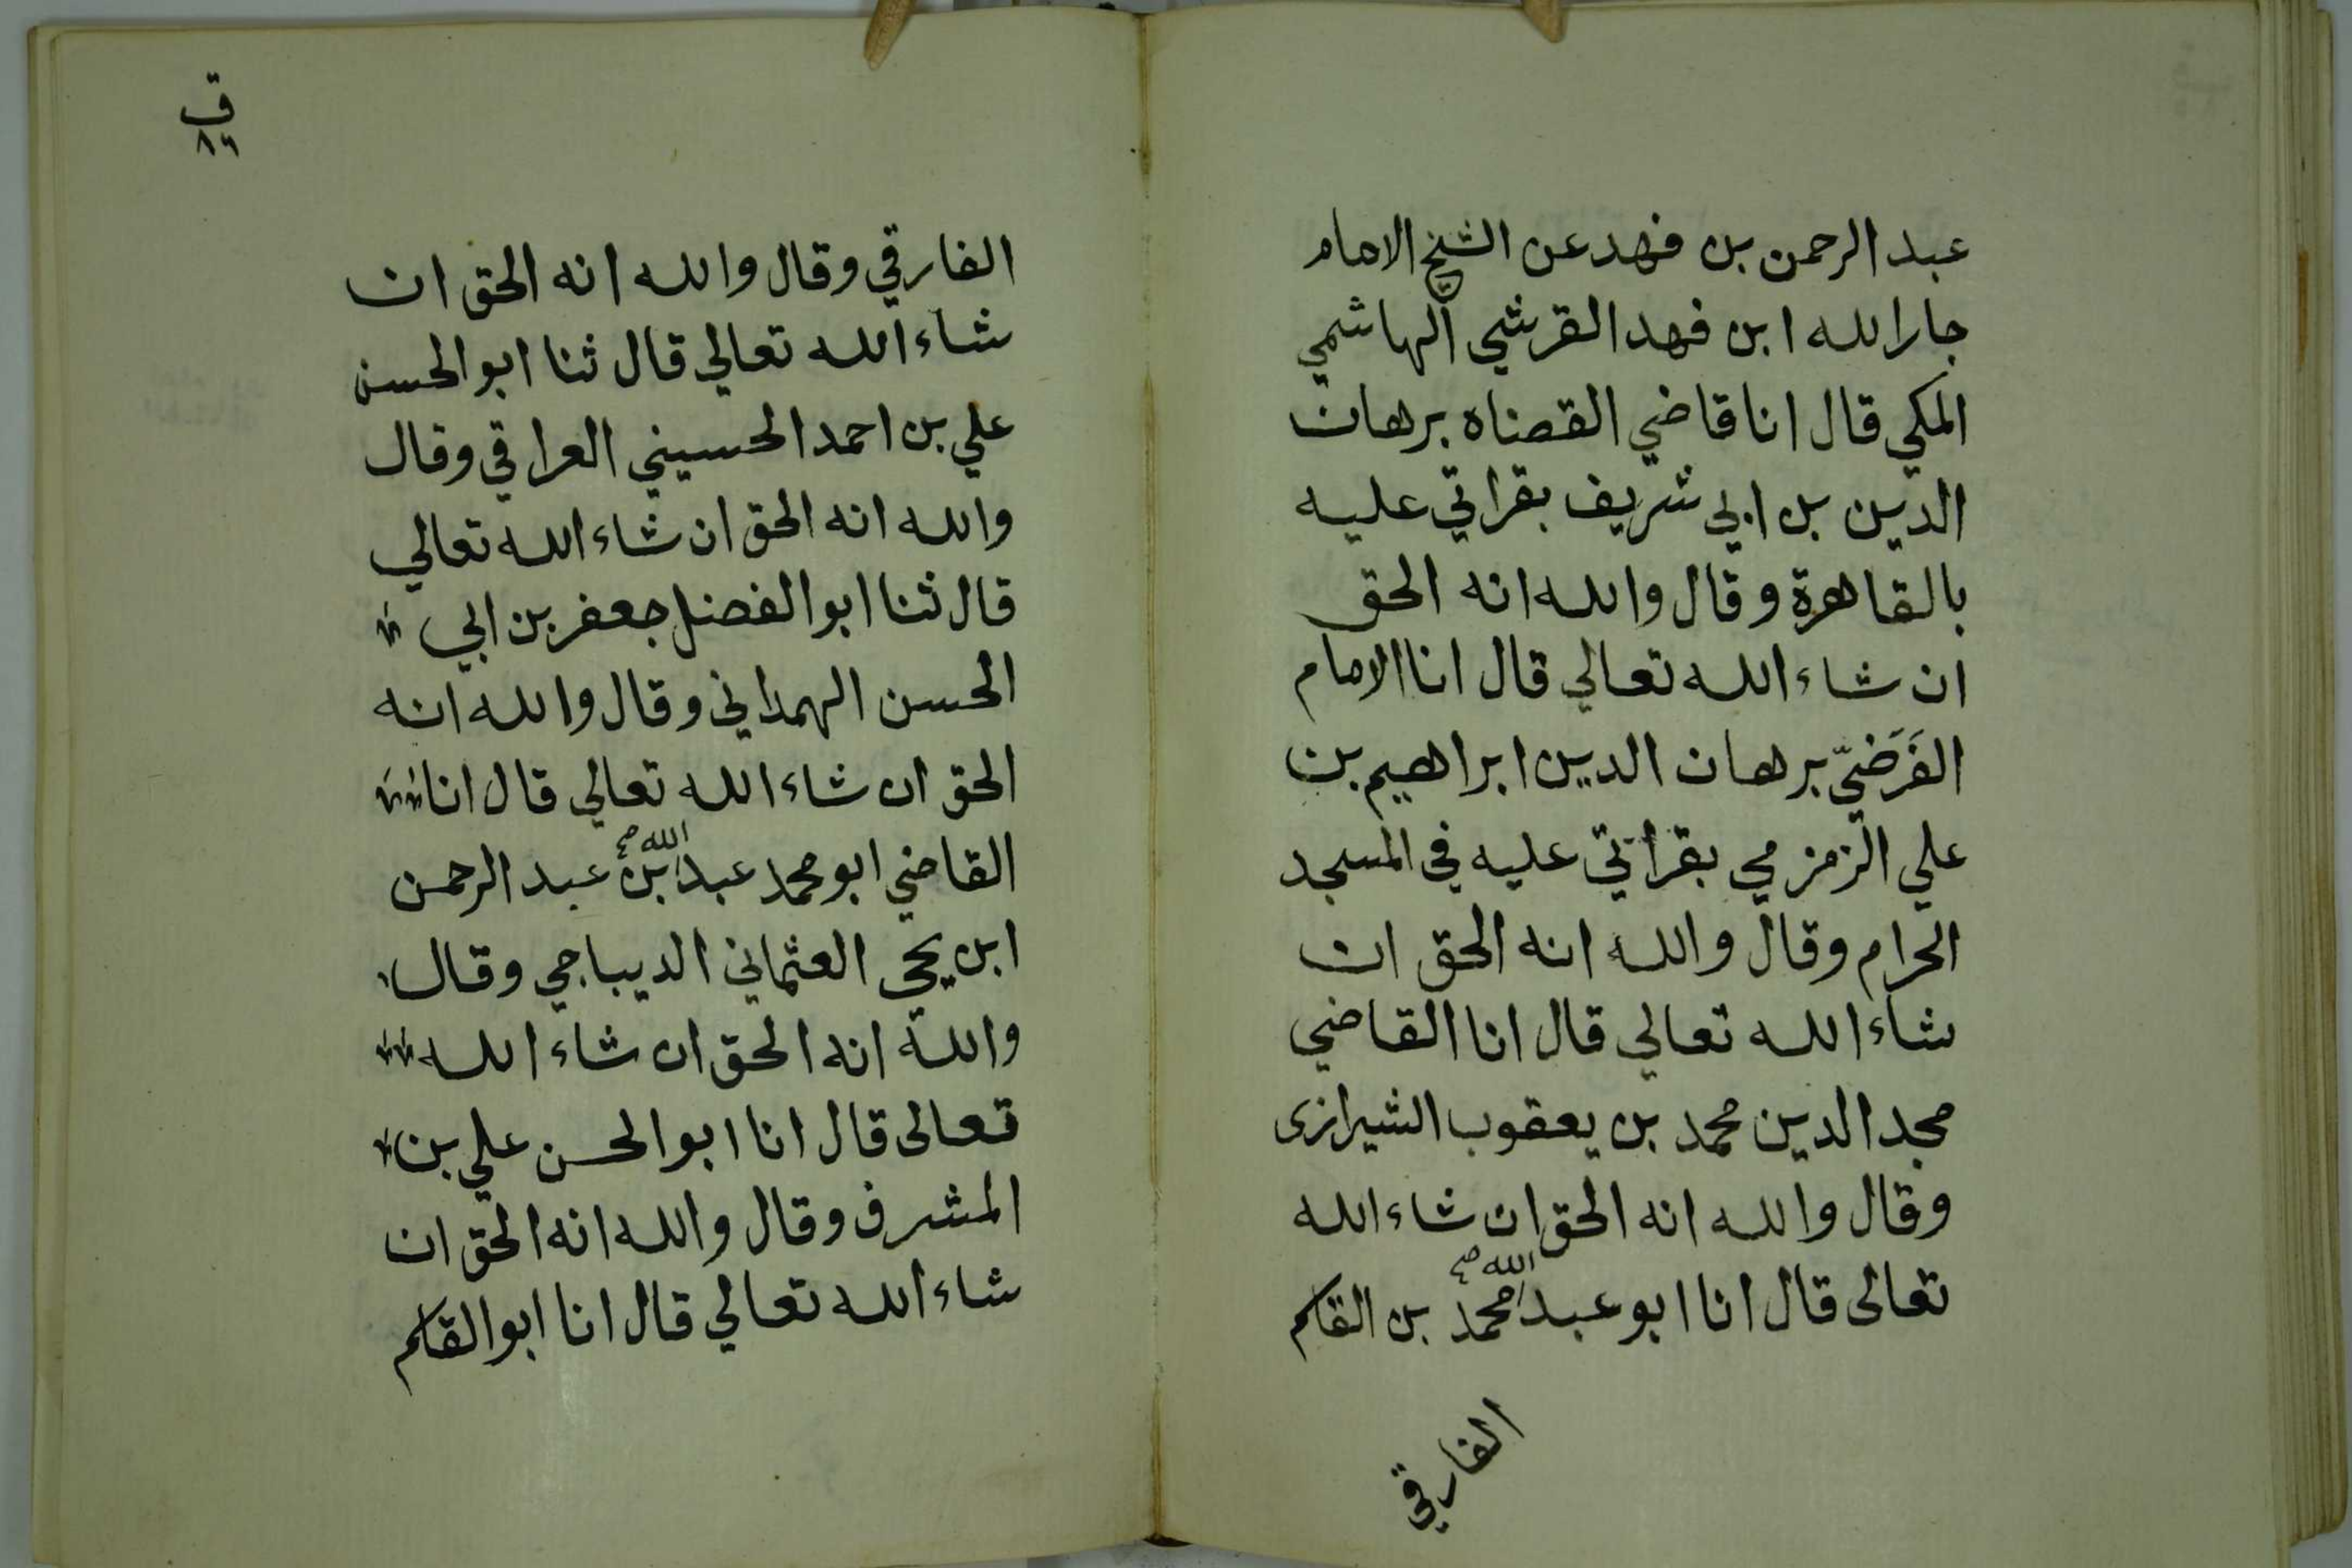 عبد الرحمن بن فهد عن الشيخ الامام
جار الله ابن فهد القرشي الهاشمي
المكي قال انا قاضي القضاه برهان
الدين بن ابي شريف بقراتي عليه
بالقاهرة وقال والله انه الحق
ان شاء الله تعالي قال انا الامام
الفَرَضيّ برهان الدين ابراهيم بن
علي الزمزمي بقراتي عليه في المسجد
الحرام وقال والله انه الحق ان
شاء الله تعالي قال انا القاضي
مجد الدين محمد بن يعقوب الشيرازى
وقال والله انه الحق ان شاء الله
تعالى قال انا ابو عبد الله صح محمد بن القاسم
الفارقي
ق
٨٦
الفارقي وقال والله انه الحق ان
شاء الله تعالي قال ثنا ابو الحسن
علي بن احمد الحسيني العراقي وقال
والله انه الحق ان شاء الله تعالي
قال ثنا ابو الفضل جعفر بن ابي
الحسن الهمداني وقال والله انه
الحق ان شاء الله تعالي قال انا
القاضي ابو محمد عبد الله صح بن عبد الرحمن
ابن يحي العثماني الديباجي وقال
والله انه الحق ان شاء الله
تعالى قال انا ابو الحسن علي بن
المشرف وقال والله انه الحق ان
شاء الله تعالي قال انا ابو القاسم